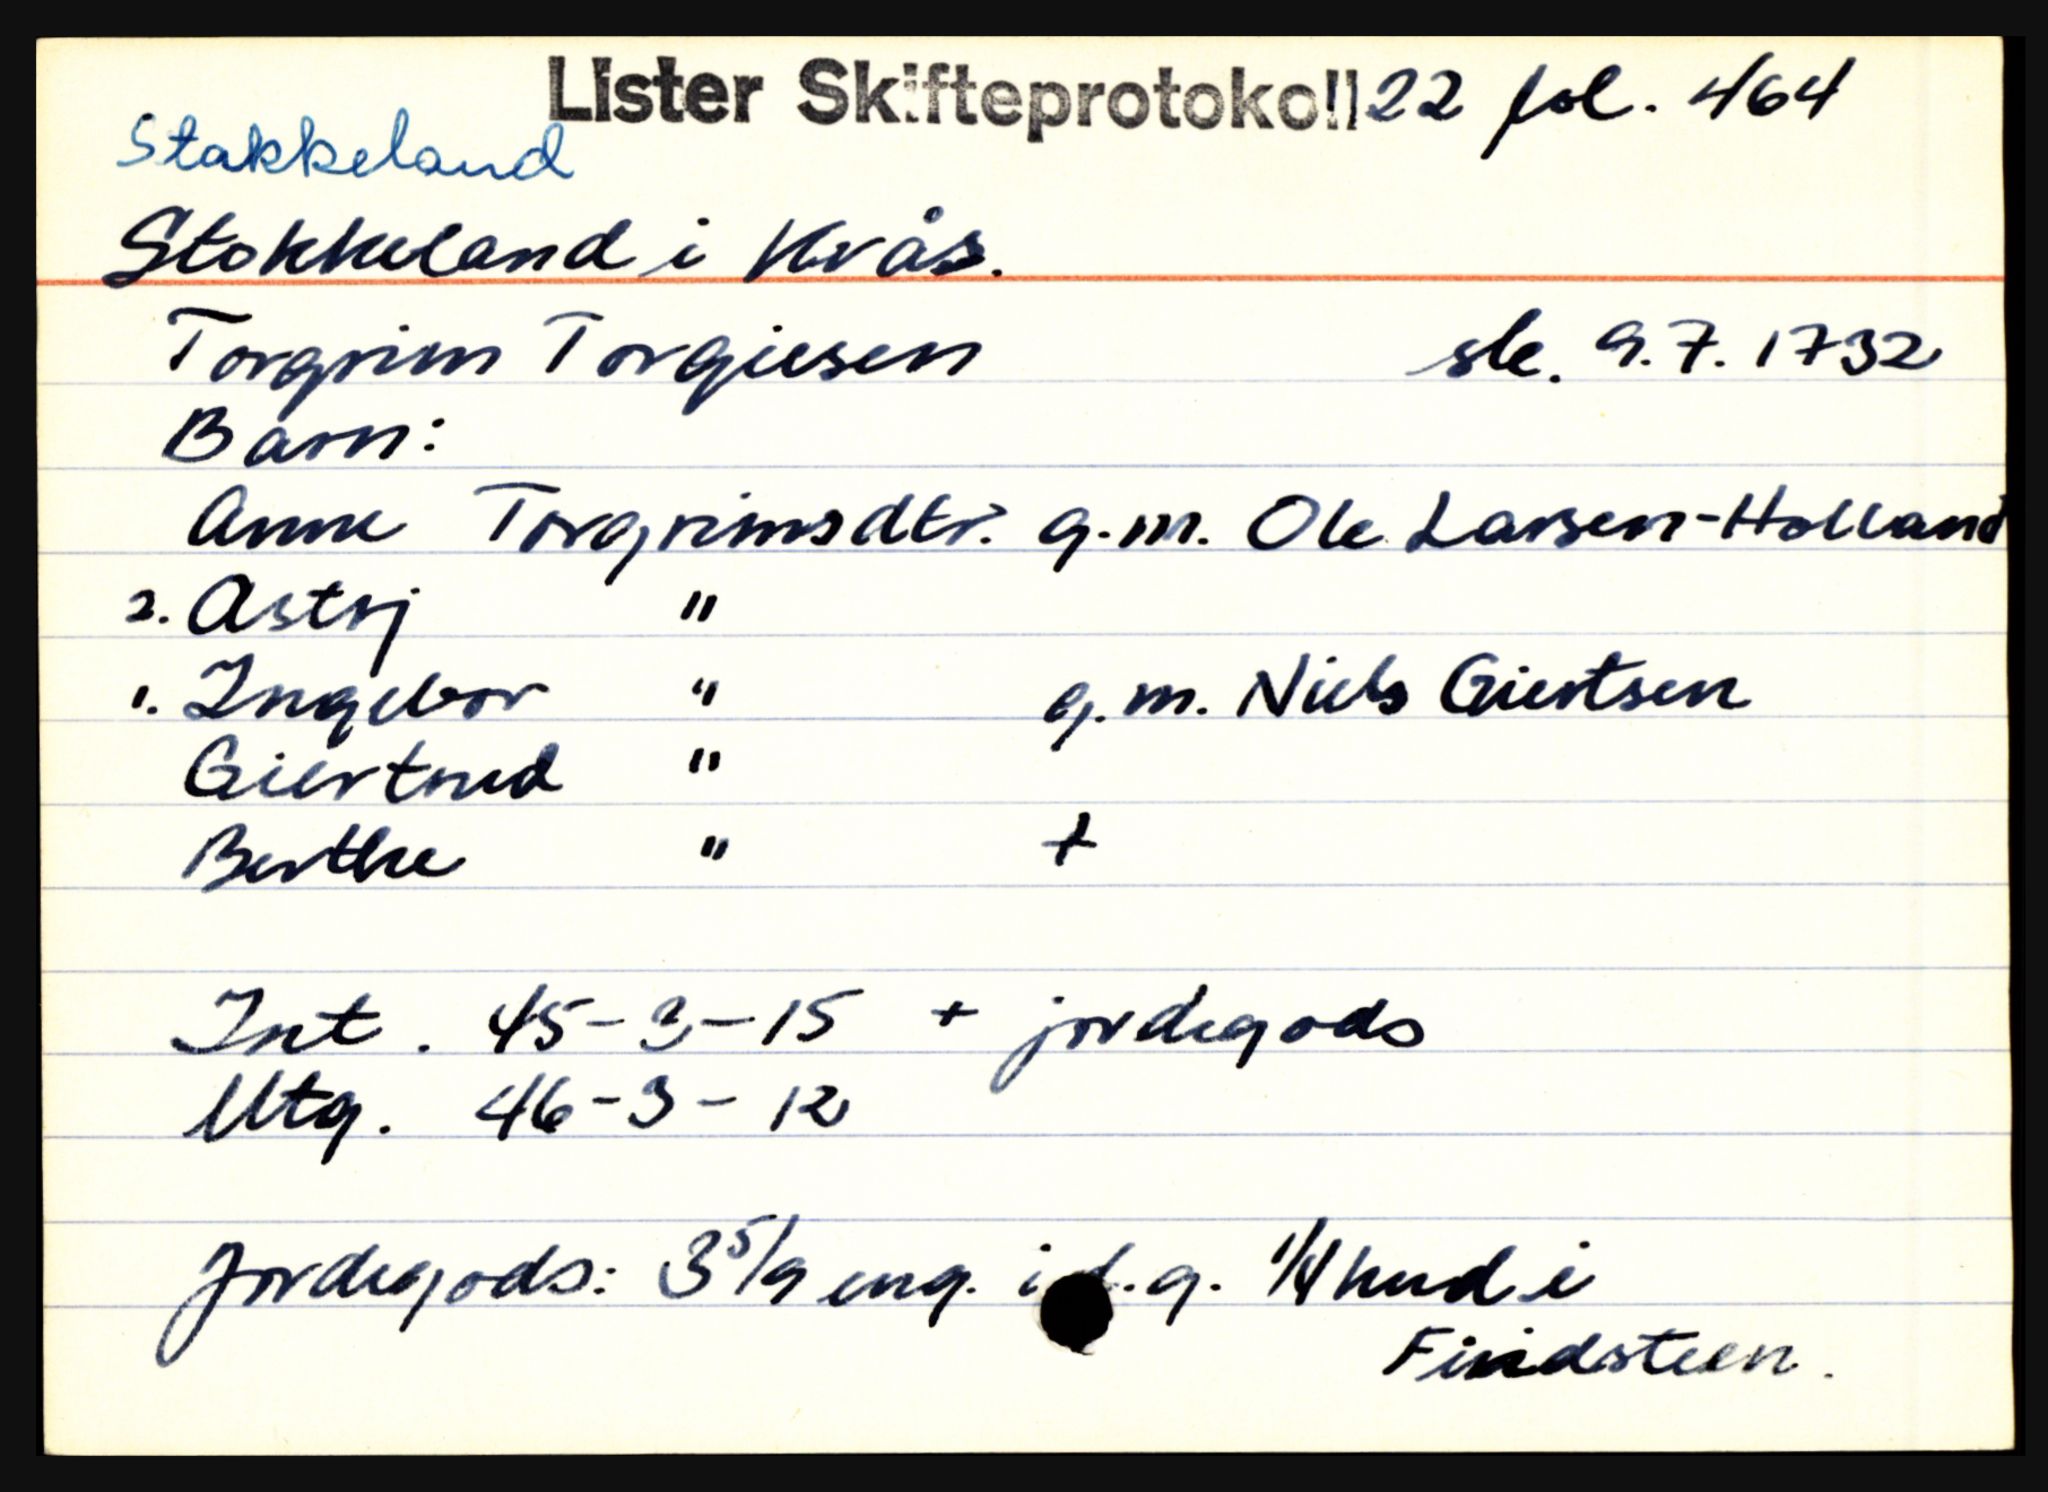 Lister Skifteprotokoll 22 fol. 464
Stakkeland
Stokkeland i Kvås.
Torgrim Torgiesen ske. 9.7.1732
Barn:
Anne Torgrimsdtr. g.m. Ole Larsen-Holland
2. Astrj "
1. Ingebor " g.m. Niels Giertsen
Giertrud "
Berthe " +
Int. 45-3-15 + jordegods
Utg. 46-3-12
Jordegods: 3 5/9 eng. i d.g. 1/4 hud i
Findsteen.